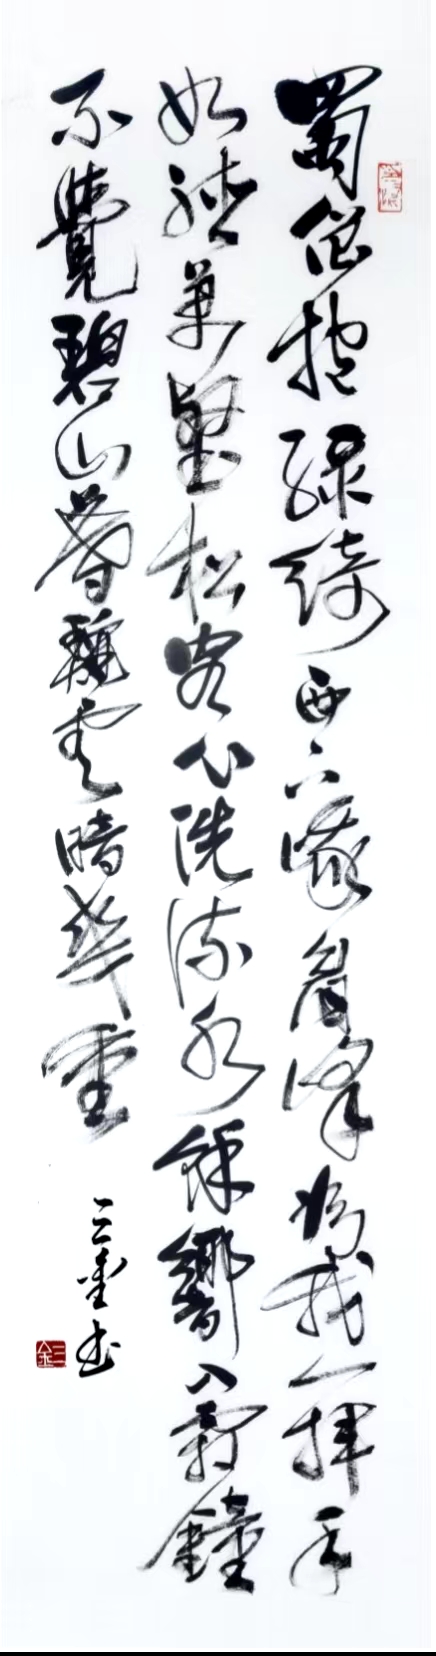 蜀僧抱綠綺西下峨眉峰為我一揮手
如聽萬壑松客心洗流水餘響入霜鐘
不覺碧山暮秋雲暗幾重
三金书
三金